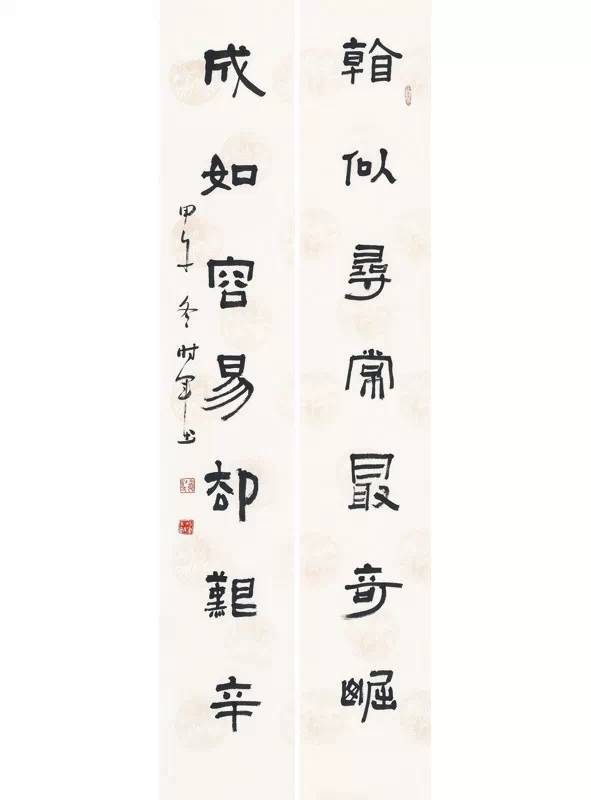 看似尋常最奇崛
成如容易卻艱辛
甲午冬时军书